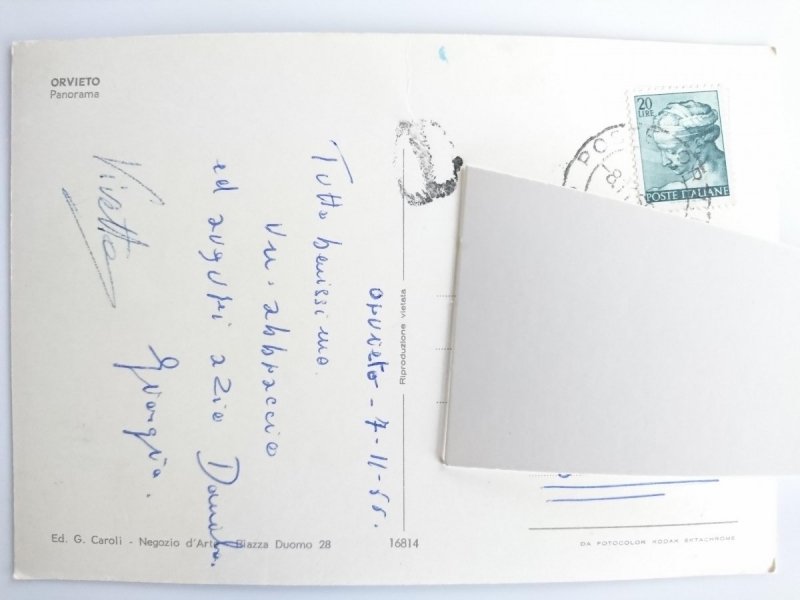 ORVIETO
Panorama
Orvieto - 7-11-65.
Tutto benissimo.
un abbraccio
ed auguri a zio
Giorgio.
20
LIRE
POSTE ITALIANE
Riproduzione vietata
Ed. G. Caroli - Negozio d'Arte Piazza Duomo 28
16814
DA FOTOCOLOR KODAK EKTACHROME